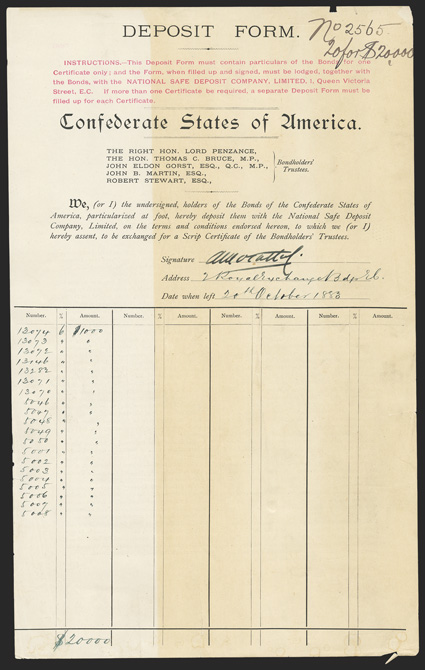 DEPOSIT FORM.
No 2565.
20 for $20000
INSTRUCTIONS.—This Deposit Form must contain particulars of the Bonds for one
Certificate only; and the Form, when filled up and signed, must be lodged, together with
the Bonds, with the NATIONAL SAFE DEPOSIT COMPANY, LIMITED, 1, Queen Victoria
Street, E.C. If more than one Certificate be required, a separate Deposit Form must be
filled up for each Certificate.
Confederate States of America.
THE RIGHT HON. LORD PENZANCE,
THE HON. THOMAS C. BRUCE, M.P.,
JOHN ELDON GORST, ESQ., Q.C., M.P.,
JOHN B. MARTIN, ESQ.,
ROBERT STEWART, ESQ.,
Bondholders'
Trustees.
We, (or I) the undersigned, holders of the Bonds of the Confederate States of
America, particularized at foot, hereby deposit them with the National Safe Deposit
Company, Limited, on the terms and conditions endorsed hereon, to which we (or I)
hereby assent, to be exchanged for a Scrip Certificate of the Bondholders' Trustees.
Signature
Address 2 Royal Exchange Bdgs E.C.
Date when left 20th October 1883
Number. % Amount. Number. % Amount. Number. % Amount. Number. % Amount.
13074 6 $1000
13073 " "
13072 " "
" "
13282 " "
13071 " "
13070 " "
5046 " "
5047 " "
5048 " "
5049 " "
5050 " "
5001 " "
5002 " "
5003 " "
5004 " "
5005 " "
5006 " "
5007 " "
5008 " "
$20000